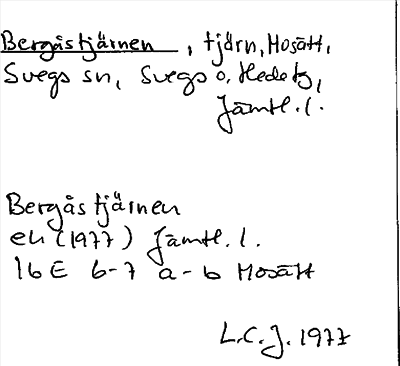 Bergåstjärnen, tjärn, Mosätt,
Svegs sn, Svegs o. Hede tg,
Jämtl. l.
Bergåstjärnen
ek (1977) Jämtl. l.
16E 6-7 a-b Mosätt
L.C.J. 1977